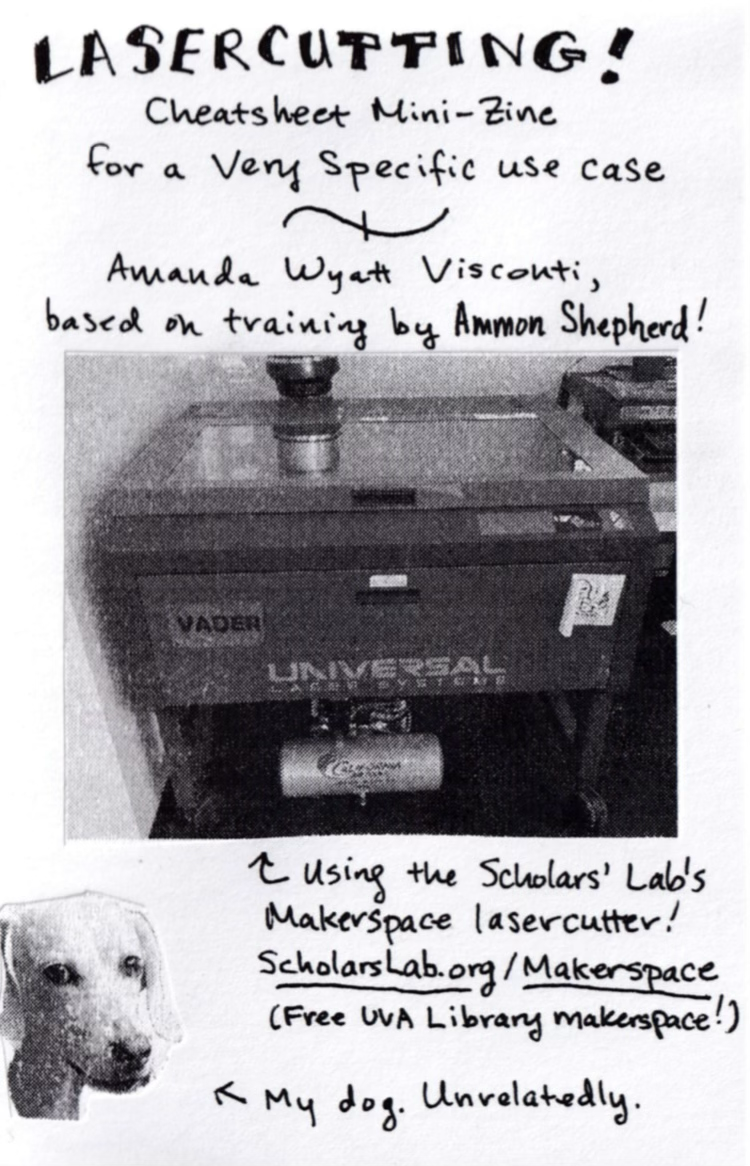 LASERCUTTING!
Cheatsheet Mini-Zine
for a Very Specific use case
Amanda Wyatt Visconti,
based on training by Ammon Shepherd!
VADER
UNIVERSAL
LASER SYSTEMS
CALIFORNIA
↑ Using the Scholars' Lab's
Makerspace lasercutter!
ScholarsLab.org/Makerspace
(Free UVA Library makerspace!)
← My dog. Unrelatedly.